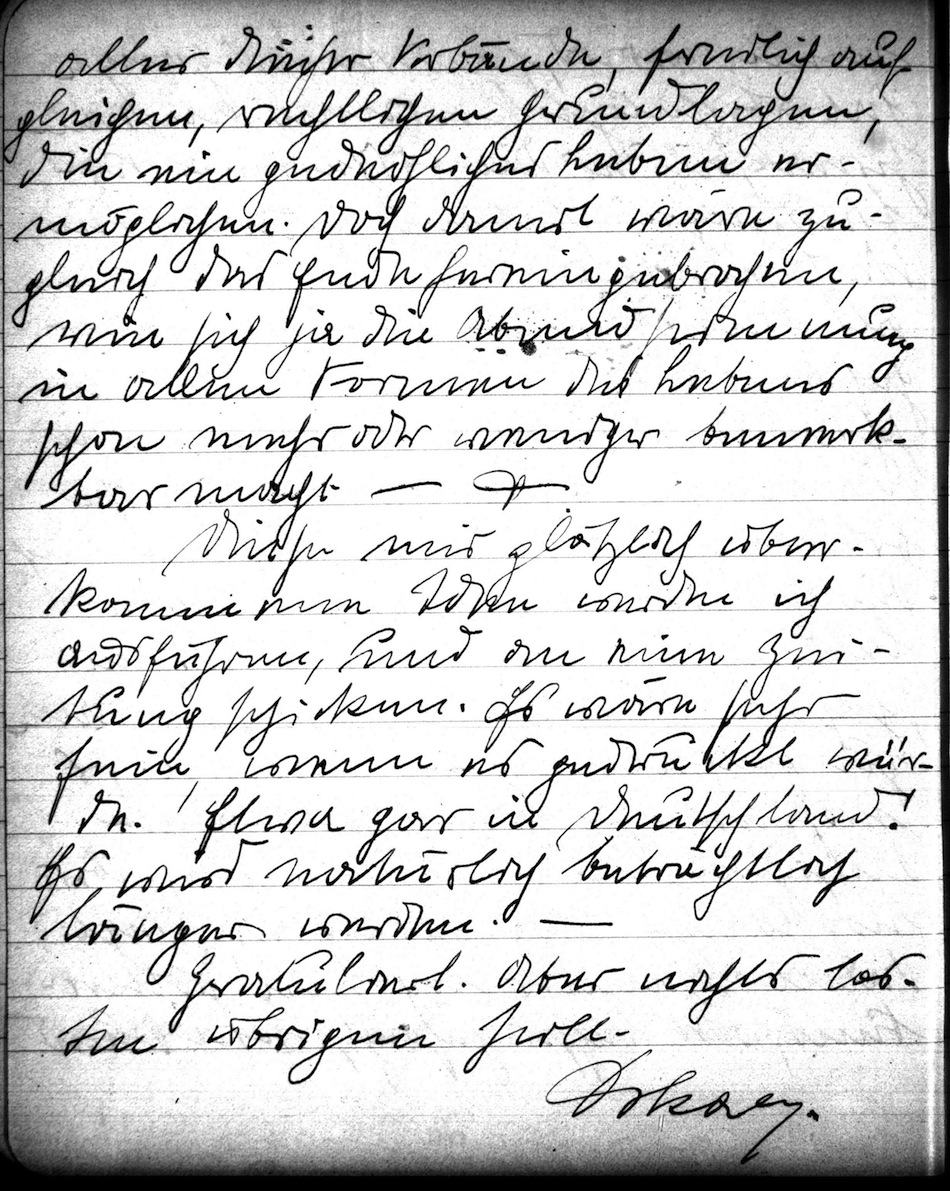 aller dieser Verbände, friedlich auf
gleichen, rechtlichen Grundlagen,
die ein gedeihliches Leben er-
möglichen. Doch damit wäre zu-
gleich das Ende hereingebrochen,
wie sich ja die Abendstimmung
in allen Formen des Lebens
schon mehr oder weniger bemerk-
bar macht —
Diese mir plötzlich über-
kommenen Ideen werde ich
ausführen, und an eine Zei-
tung schicken. Es wäre sehr
fein, wenn es gedruckt wür-
de. Etwa gar in Deutschland!
Es wird natürlich beträchtlich
länger werden. —
Gratuliert. Aber nichts
übrigen still.